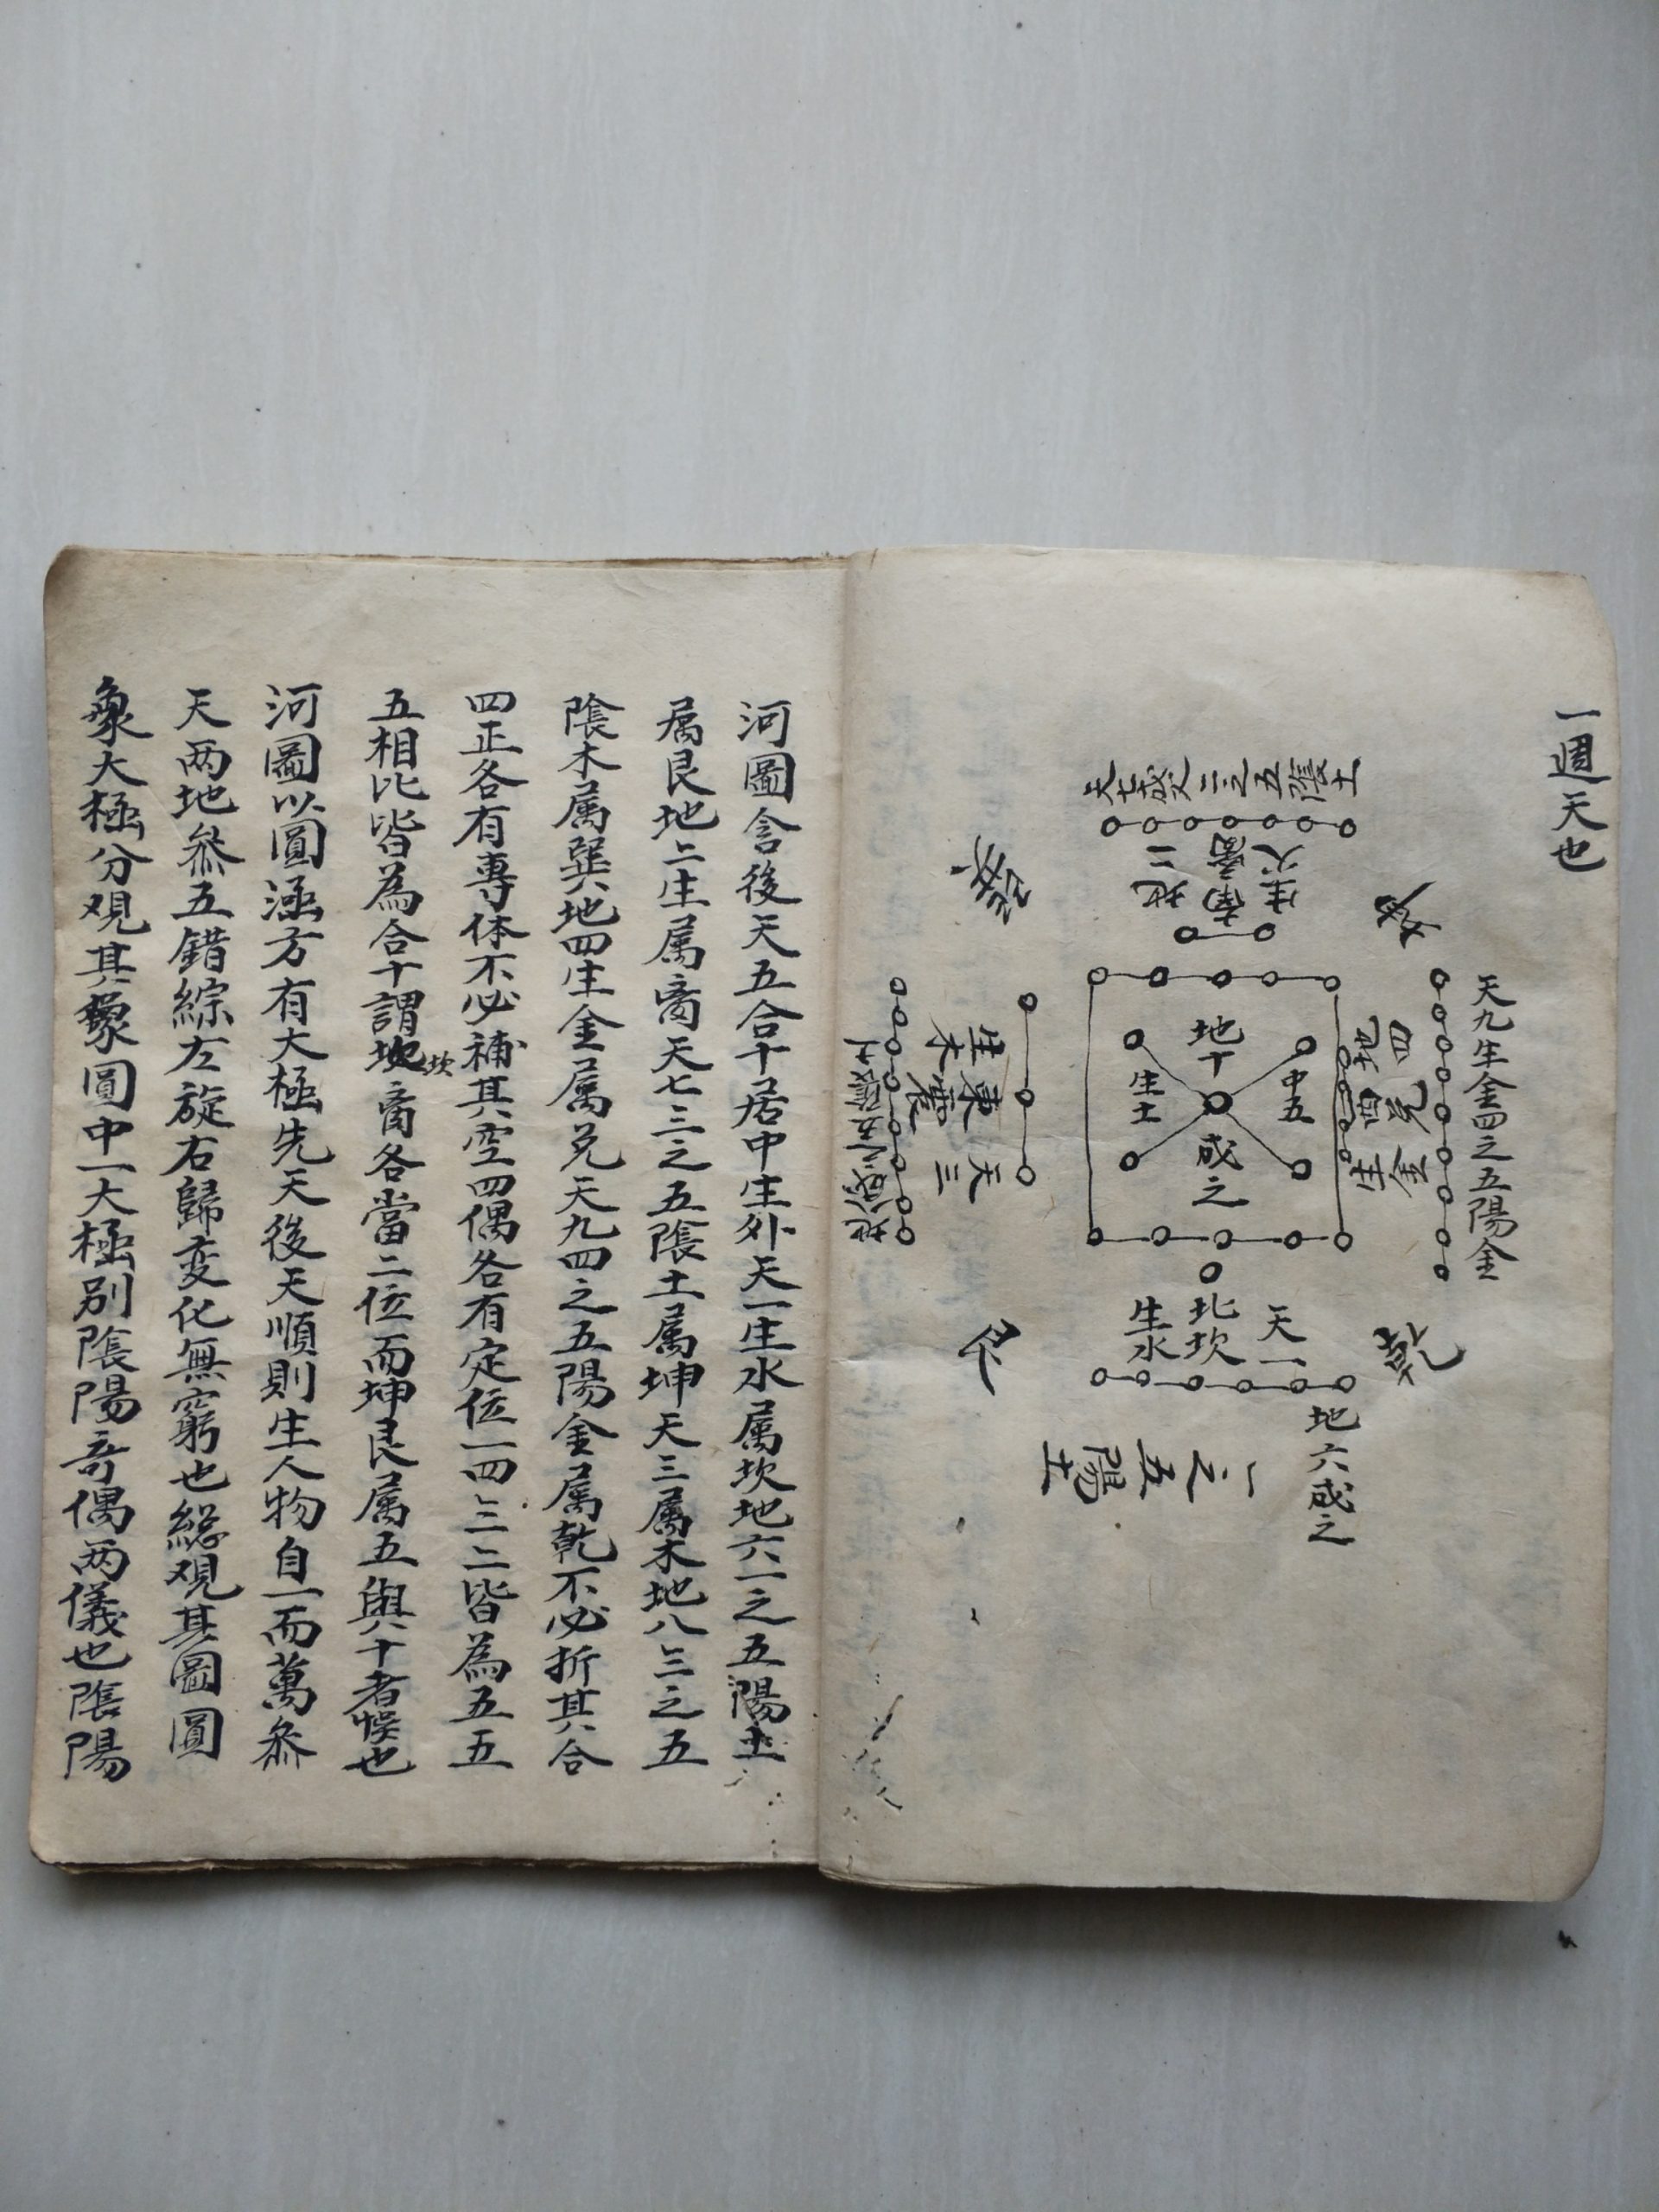 一週天也
天九生金四之五陽金
天七成火二之五陰土
地二
南离
生火
巽
坤
地十
成之
中五
生土
四
兑
金
酉
生木
東震
天三
地八成
天一
北坎
生水
艮
乾
地六成之
一之五陽土
河圖含後天五合十居中生外天一生水属坎地六一之五陽土
属艮地二生属离天七二之五陰土属坤天三属木地八三之五
陰木属巽地四生金属兑天九四之五陽金属乾不必折其合
四正各有專体不必補其空四偶各有定位一四三二皆為五五
五相比皆為合十謂坎坎离各當二位而坤艮属五與十者悮也
河圖以圓涵方有大極先天後天順則生人物自一而萬叅
天两地叅五錯綜左旋右歸变化無窮也総观其圖圓
象大極分观其象圓中一大極别陰陽奇偶两儀也陰陽